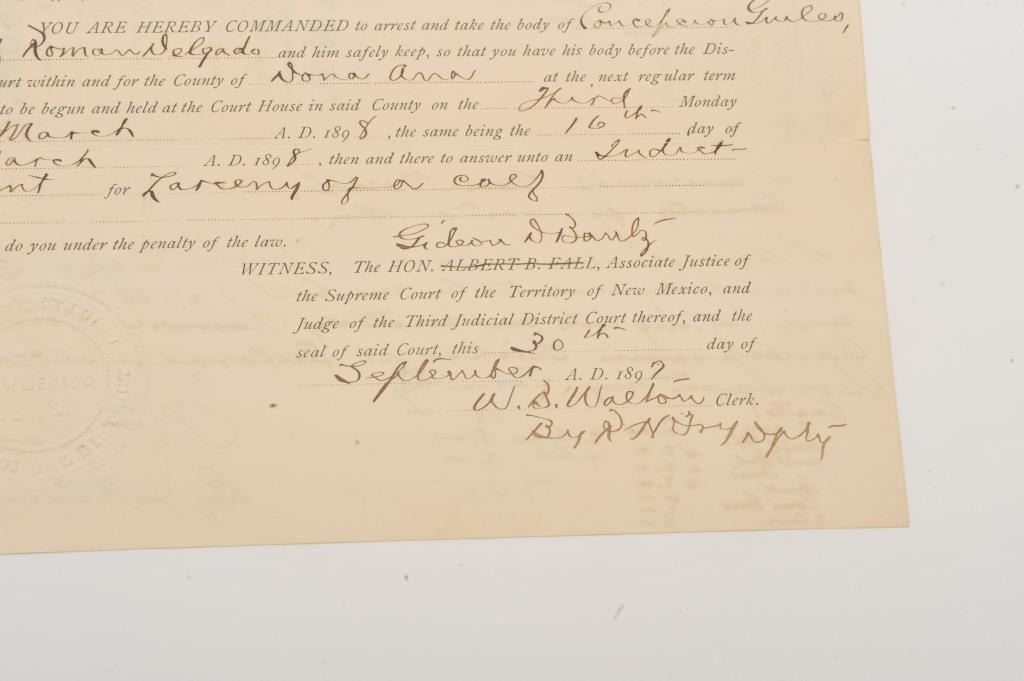 YOU ARE HEREBY COMMANDED to arrest and take the body of Concepcion
Roman Delgado and him safely keep, so that you have his body before the Dis-
urt within and for the County of Dona Ana at the next regular term
to be begun and held at the Court House in said County on the Third Monday
March A. D. 1898, the same being the 16th day of
arch A. D. 1898, then and there to answer unto an Indict-
nt for Larceny of a calf
do you under the penalty of the law.
Gideon D Bantz
WITNESS, The HON. ALBERT B. FALL, Associate Justice of
the Supreme Court of the Territory of New Mexico, and
Judge of the Third Judicial District Court thereof, and the
seal of said Court, this 30th day of
September A. D. 1897
W. B. Walton Clerk.
By R N Dpty